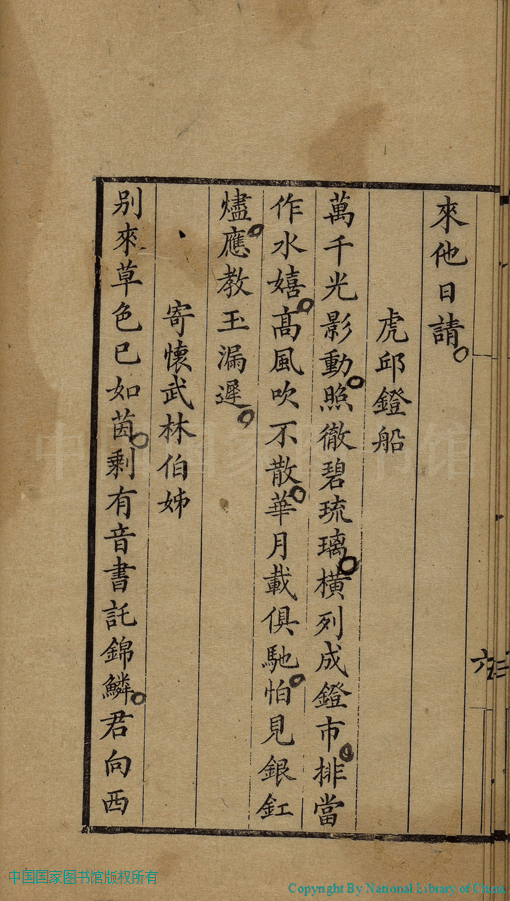 來他日請
虎邱鐙船
萬千光影動照徹碧琉璃橫列成鐙市排當
作水嬉高風吹不散華月載俱馳怕見銀釭
燼應教玉漏遲
寄懷武林伯姊
别來草色已如茵剩有音書託錦鱗君向西
中国国家图书馆版权所有
Copyright By National Library of China